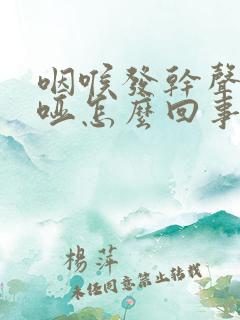 咽喉發幹聲
啞怎麽回事
楊萍
未任同意禁止转载